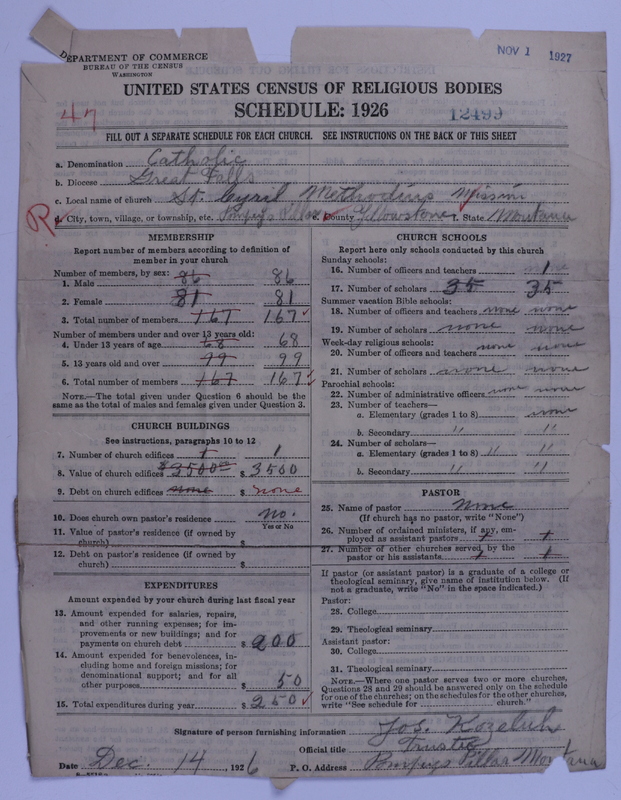 DEPARTMENT OF COMMERCE
BUREAU OF THE CENSUS
WASHINGTON
NOV 1 1927
UNITED STATES CENSUS OF RELIGIOUS BODIES
SCHEDULE: 1926
47
12499
FILL OUT A SEPARATE SCHEDULE FOR EACH CHURCH. SEE INSTRUCTIONS ON THE BACK OF THIS SHEET
a. Denomination Catholic
b. Diocese Great Falls
c. Local name of church St. Cyril Methodius Mission
R
d. City, town, village, or township, etc. Pompeys Pillar e. County Yellowstone f. State Montana
MEMBERSHIP
Report number of members according to definition of member in your church
Number of members, by sex:
1. Male 86 86
2. Female 81 81
3. Total number of members 167 167
Number of members under and over 13 years old:
4. Under 13 years of age 68 68
5. 13 years old and over 99 99
6. Total number of members 167 167
NOTE.—The total given under Question 6 should be the same as the total of males and females given under Question 3.
CHURCH BUILDINGS
See instructions, paragraphs 10 to 12
7. Number of church edifices 1 1
8. Value of church edifices $3500 $ 3500
9. Debt on church edifices none $ none
10. Does church own pastor's residence no.
Yes or No
11. Value of pastor's residence (if owned by church) $
12. Debt on pastor's residence (if owned by church) $
EXPENDITURES
Amount expended by your church during last fiscal year
13. Amount expended for salaries, repairs, and other running expenses; for improvements or new buildings; and for payments on church debt $ 200
14. Amount expended for benevolences, including home and foreign missions; for denominational support; and for all other purposes $ 50
15. Total expenditures during year $ 250
CHURCH SCHOOLS
Report here only schools conducted by this church
Sunday schools:
16. Number of officers and teachers 1
17. Number of scholars 35 35
Summer vacation Bible schools:
18. Number of officers and teachers none none
19. Number of scholars none none
Week-day religious schools:
20. Number of officers and teachers none none
21. Number of scholars none none
Parochial schools:
22. Number of administrative officers none none
23. Number of teachers—
a. Elementary (grades 1 to 8) none
b. Secondary " "
24. Number of scholars—
a. Elementary (grades 1 to 8) " "
b. Secondary " "
PASTOR
25. Name of pastor None
(If church has no pastor, write "None")
26. Number of ordained ministers, if any, employed as assistant pastors
27. Number of other churches served by the pastor or his assistants
If pastor (or assistant pastor) is a graduate of a college or theological seminary, give name of institution below. (If not a graduate, write "No" in the space indicated.)
Pastor:
28. College
29. Theological seminary
Assistant pastor:
30. College
31. Theological seminary
NOTE.—Where one pastor serves two or more churches, Questions 28 and 29 should be answered only on the schedule for one of the churches; on the schedules for the other churches, write "See schedule for church."
Signature of person furnishing information Jos. Kozeluh
Official title Trustee
Date Dec. 14, 1926 P. O. Address Pompeys Pillar Montana